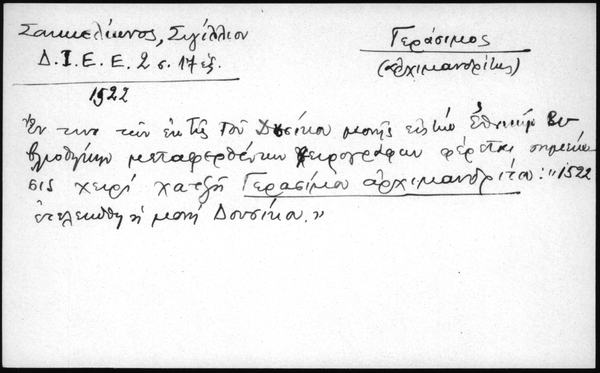 Σακκελίωνος, Σιγίλλιον
Δ.Ι.Ε.Ε. 2 σ. 17 ἑξ.
Γεράσιμος
(ἀρχιμανδρίτης)
1522
Ἔν τινι τῶν ἐκ τῆς τοῦ Δουσίκου μονῆς εἰς τὴν Ἐθνικήν Βι
βλιοθήκην μεταφερθέντων χειρογράφων φέρεται σημείω
σις χειρί χατζῆ Γερασίμου ἀρχιμανδρίτου: "1522
ἐτελειώθη ἡ μονή Δουσίκου."